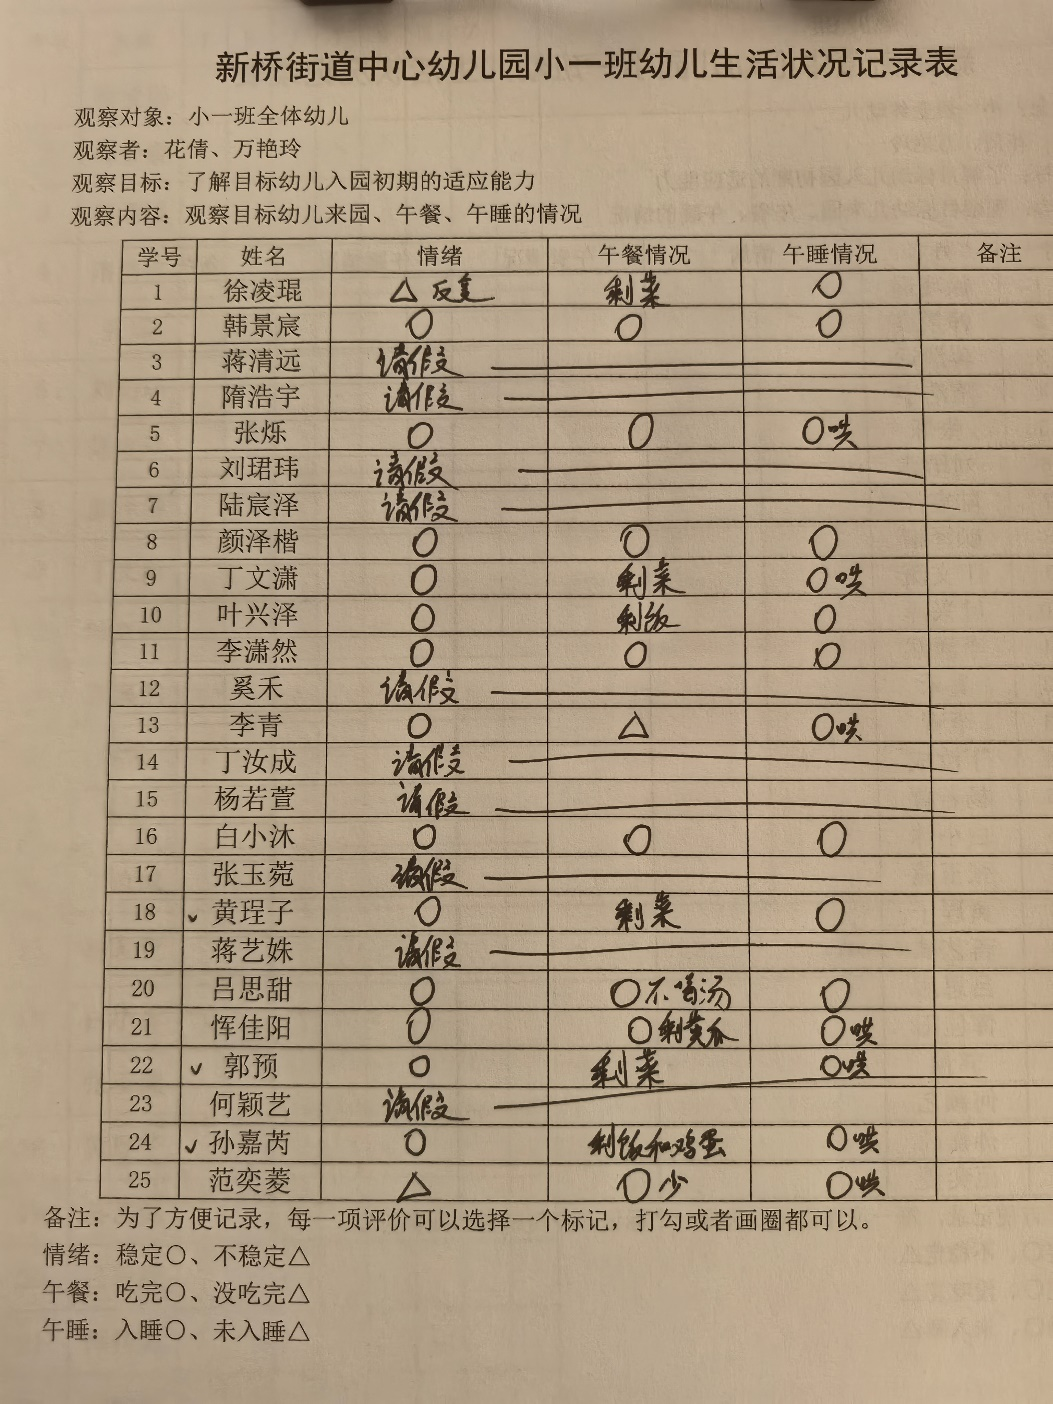 新桥街道中心幼儿园小一班幼儿生活状况记录表
观察对象：小一班全体幼儿
观察者：花倩、万艳玲
观察目标：了解目标幼儿入园初期的适应能力
观察内容：观察目标幼儿来园、午餐、午睡的情况
学号 姓名 情绪 午餐情况 午睡情况 备注
1 徐凌琨 △ 反复 剩菜 〇
2 韩景宸 〇 〇 〇
3 蒋清远 请假
4 隋浩宇 请假
5 张烁 〇 〇 〇哄
6 刘珺玮 请假
7 陆宸泽 请假
8 颜泽楷 〇 〇 〇
9 丁文潇 〇 剩菜 〇哄
10 叶兴泽 〇 剩饭 〇
11 李潇然 〇 〇 〇
12 奚禾 请假
13 李青 〇 △ 〇哄
14 丁汝成 请假
15 杨若萱 请假
16 白小沐 〇 〇 〇
17 张玉菀 请假
18 ✓ 黄珵子 〇 剩菜 〇
19 蒋艺姝 请假
20 吕思甜 〇 〇不喝汤 〇
21 恽佳阳 〇 〇剩黄瓜 〇哄
22 ✓ 郭预 〇 剩菜 〇哄
23 何颖艺 请假
24 ✓ 孙嘉芮 〇 剩饭和鸡蛋 〇哄
25 范奕菱 △ 〇少 〇哄
备注：为了方便记录，每一项评价可以选择一个标记，打勾或者画圈都可以。
情绪：稳定〇、不稳定△
午餐：吃完〇、没吃完△
午睡：入睡〇、未入睡△